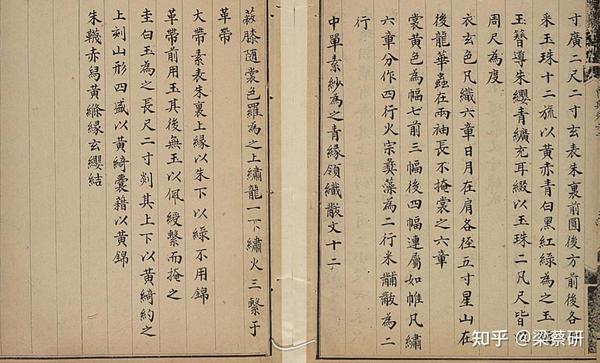 寸廣二尺二寸玄表朱裏前圓後方前後各
采玉珠十二旒以黃赤青白黑紅綠為之玉
玉簪導朱纓青纊充耳綴以玉珠二凡尺皆
周尺為度
衣玄色凡織六章日月在肩各徑五寸星山在
後龍華蟲在兩袖長不掩裳之六章
裳黃色為幅七前三幅後四幅連屬如帷凡繡
六章分作四行火宗彝藻為二行米黼黻為二
行
中單素紗為之青緣領織黻文十二
蔽膝隨裳色羅為之上繡龍一下繡火三繫于
革帶
大帶素表朱裏上緣以朱下以綠不用錦
革帶前用玉其後無玉以佩綬繫而掩之
圭白玉為之長尺二寸剡其上下以黃綺約之
上刻山形四盛以黃綺囊藉以黃錦
朱韈赤舄黃絛緣玄纓結
知乎 @梁蔡研